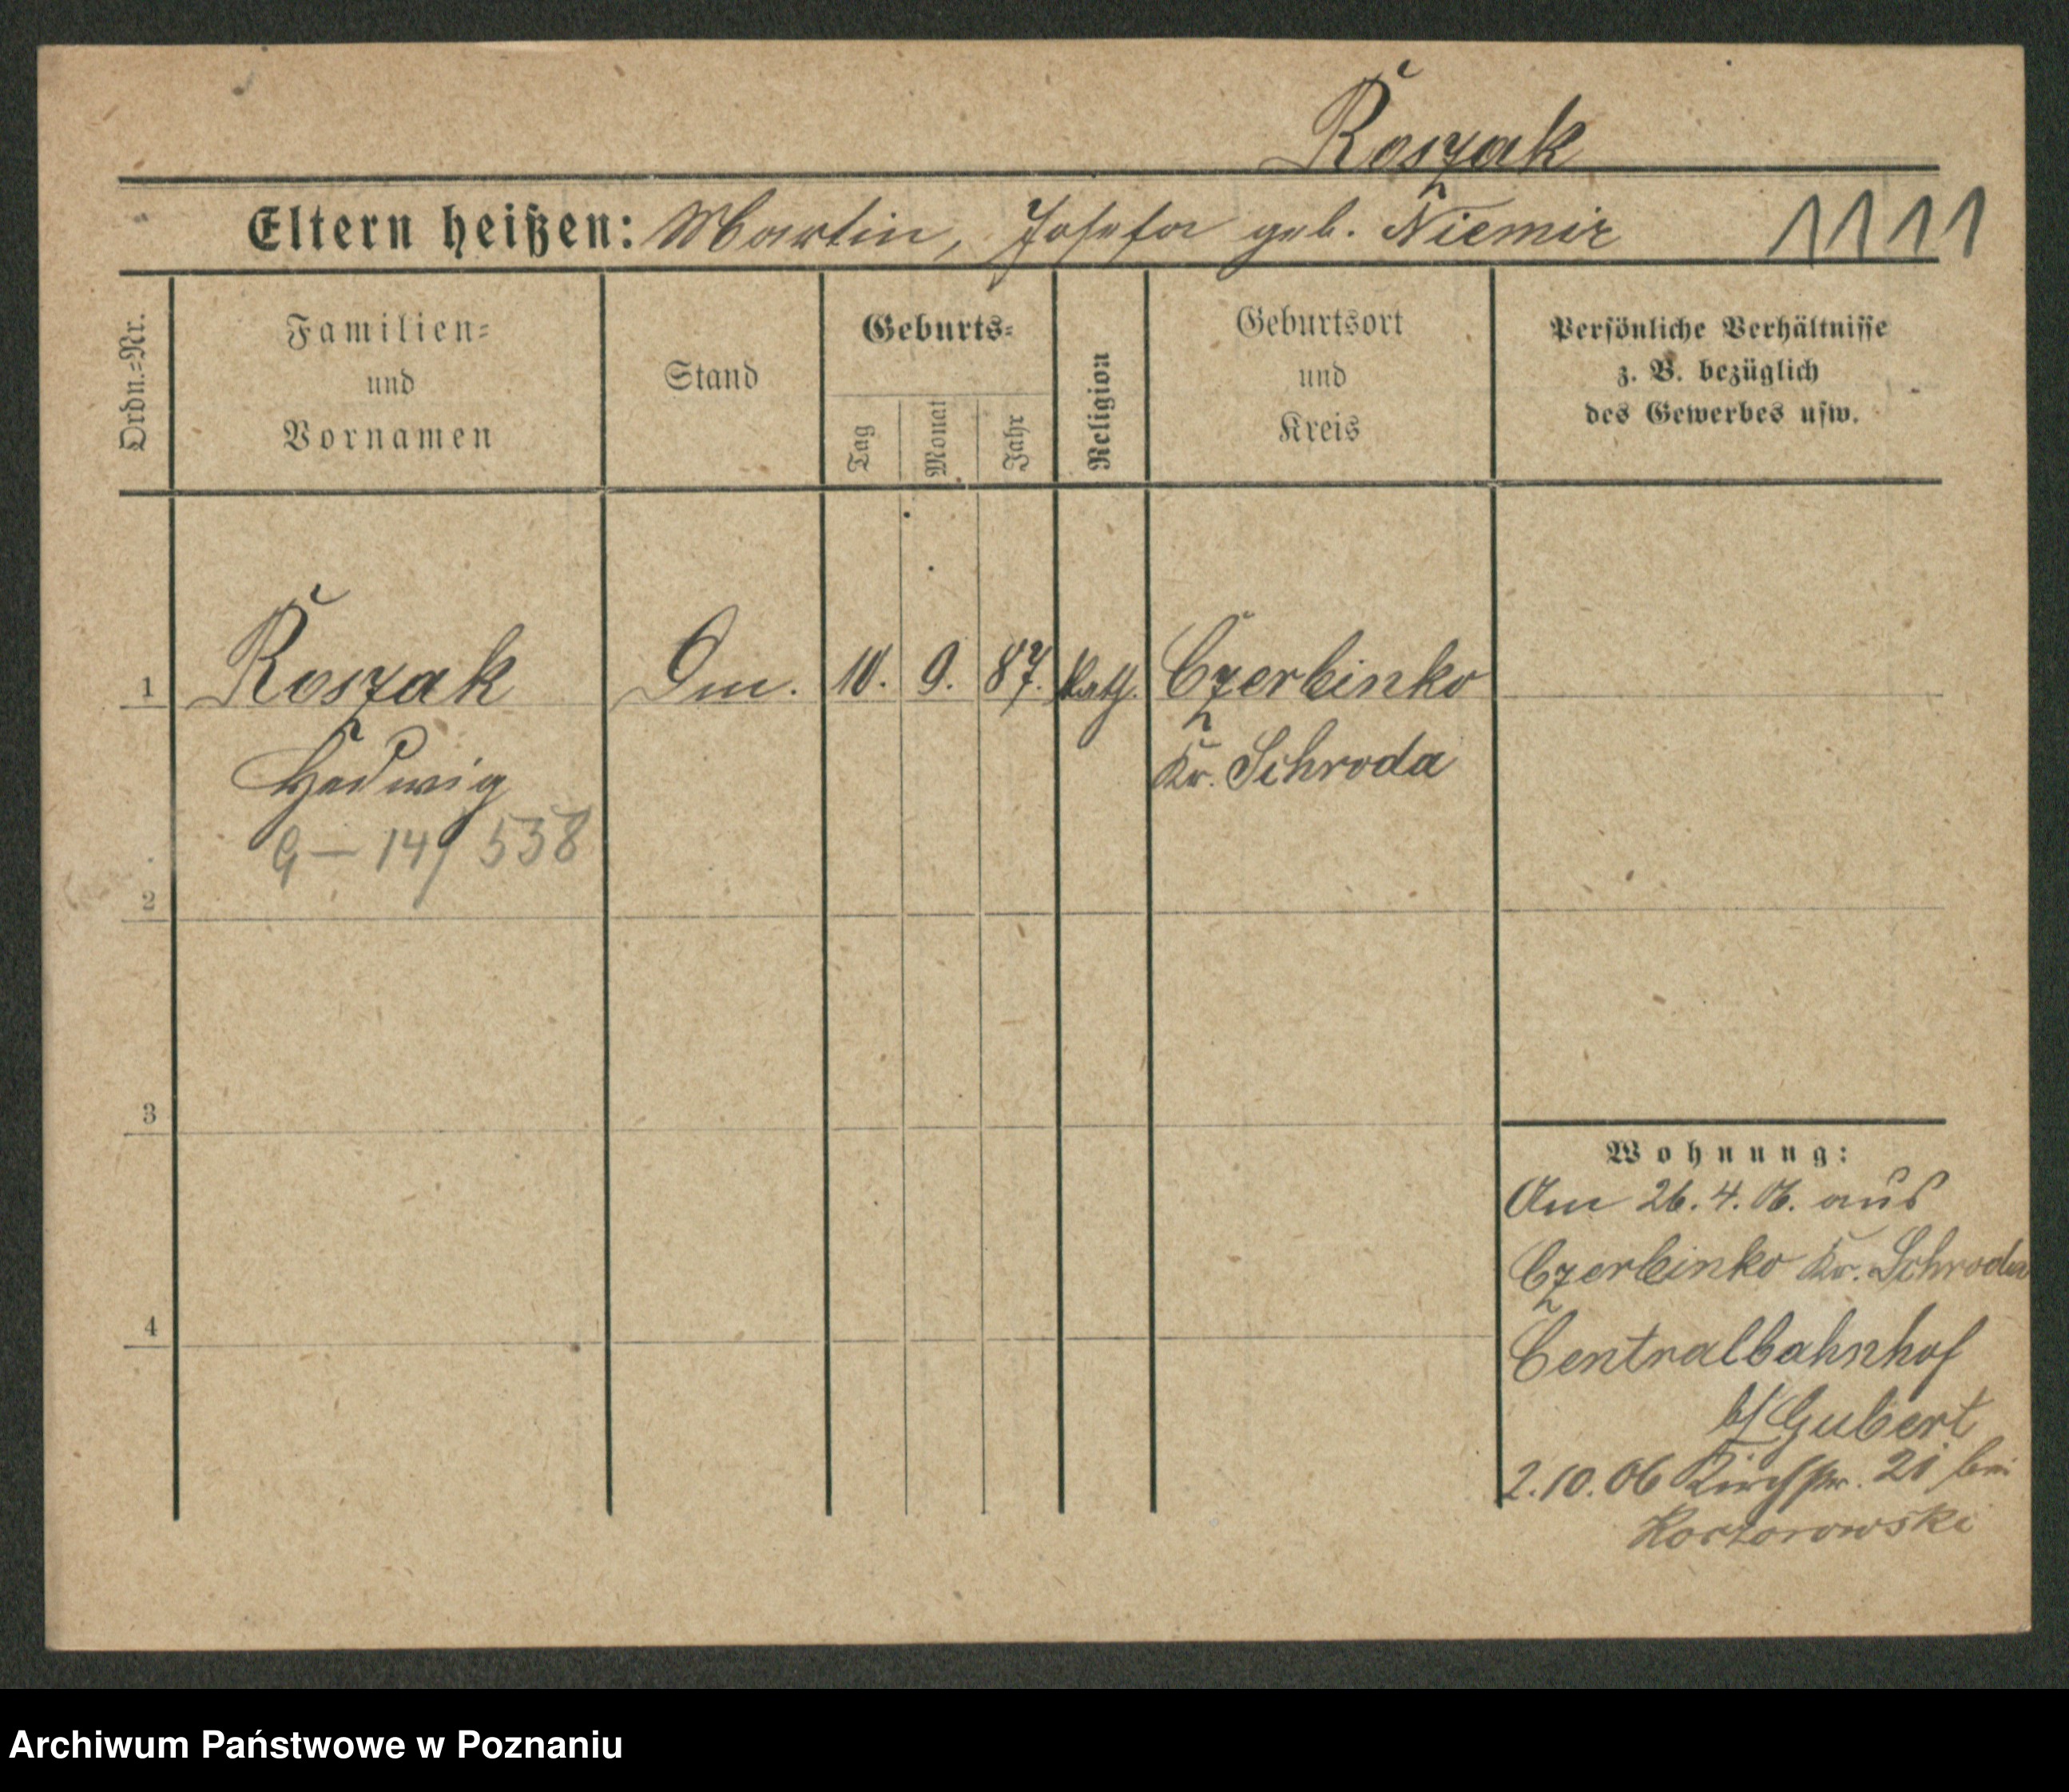 Roszak
Eltern heißen: Martin, Josefa geb. Niemir 1111
Ordn.-Nr.
Familien-
und
Vornamen
Stand
Geburts-
Tag
Monat
Jahr
Religion
Geburtsort
und
Kreis
Persönliche Verhältnisse
z. B. bezüglich
des Gewerbes usw.
1 Roszak Dm. 10. 9. 87. kath. Czerleinko
Hedwig Kr. Schroda
G-14/538
2
3
4
Wohnung:
Am 26.4.06. aus
Czerleinko Kr. Schroda
Centralbahnhof
b/ Gubert
2.10.06 Kirchstr. 21 bei
Archiwum Państwowe w Poznaniu